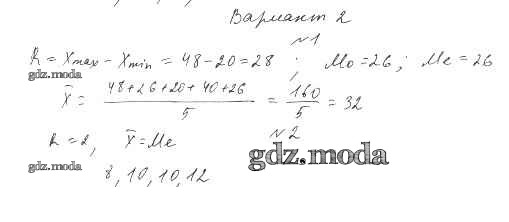 Вариант 2
№1
R = Xmax - Xmin = 48-20=28 ; Mo=26; Me=26
gdz.moda
X̄ = (48+26+20+40+26)/5 = 160/5 = 32
№2
R=2, X̄=Me
gdz.moda
gdz.moda
8, 10, 10, 12